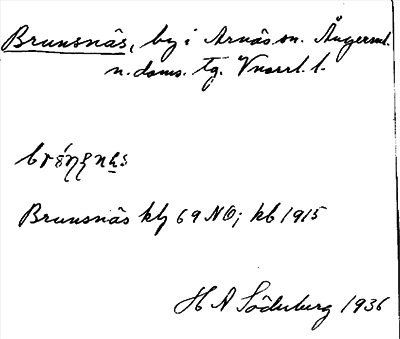 Brunsnäs, by i Arnäs sn. Ångerml.
n. doms. tg. Vnorrl. l.
Brunsnäs kbg 69 NO; kb 1915
H A Söderberg 1936